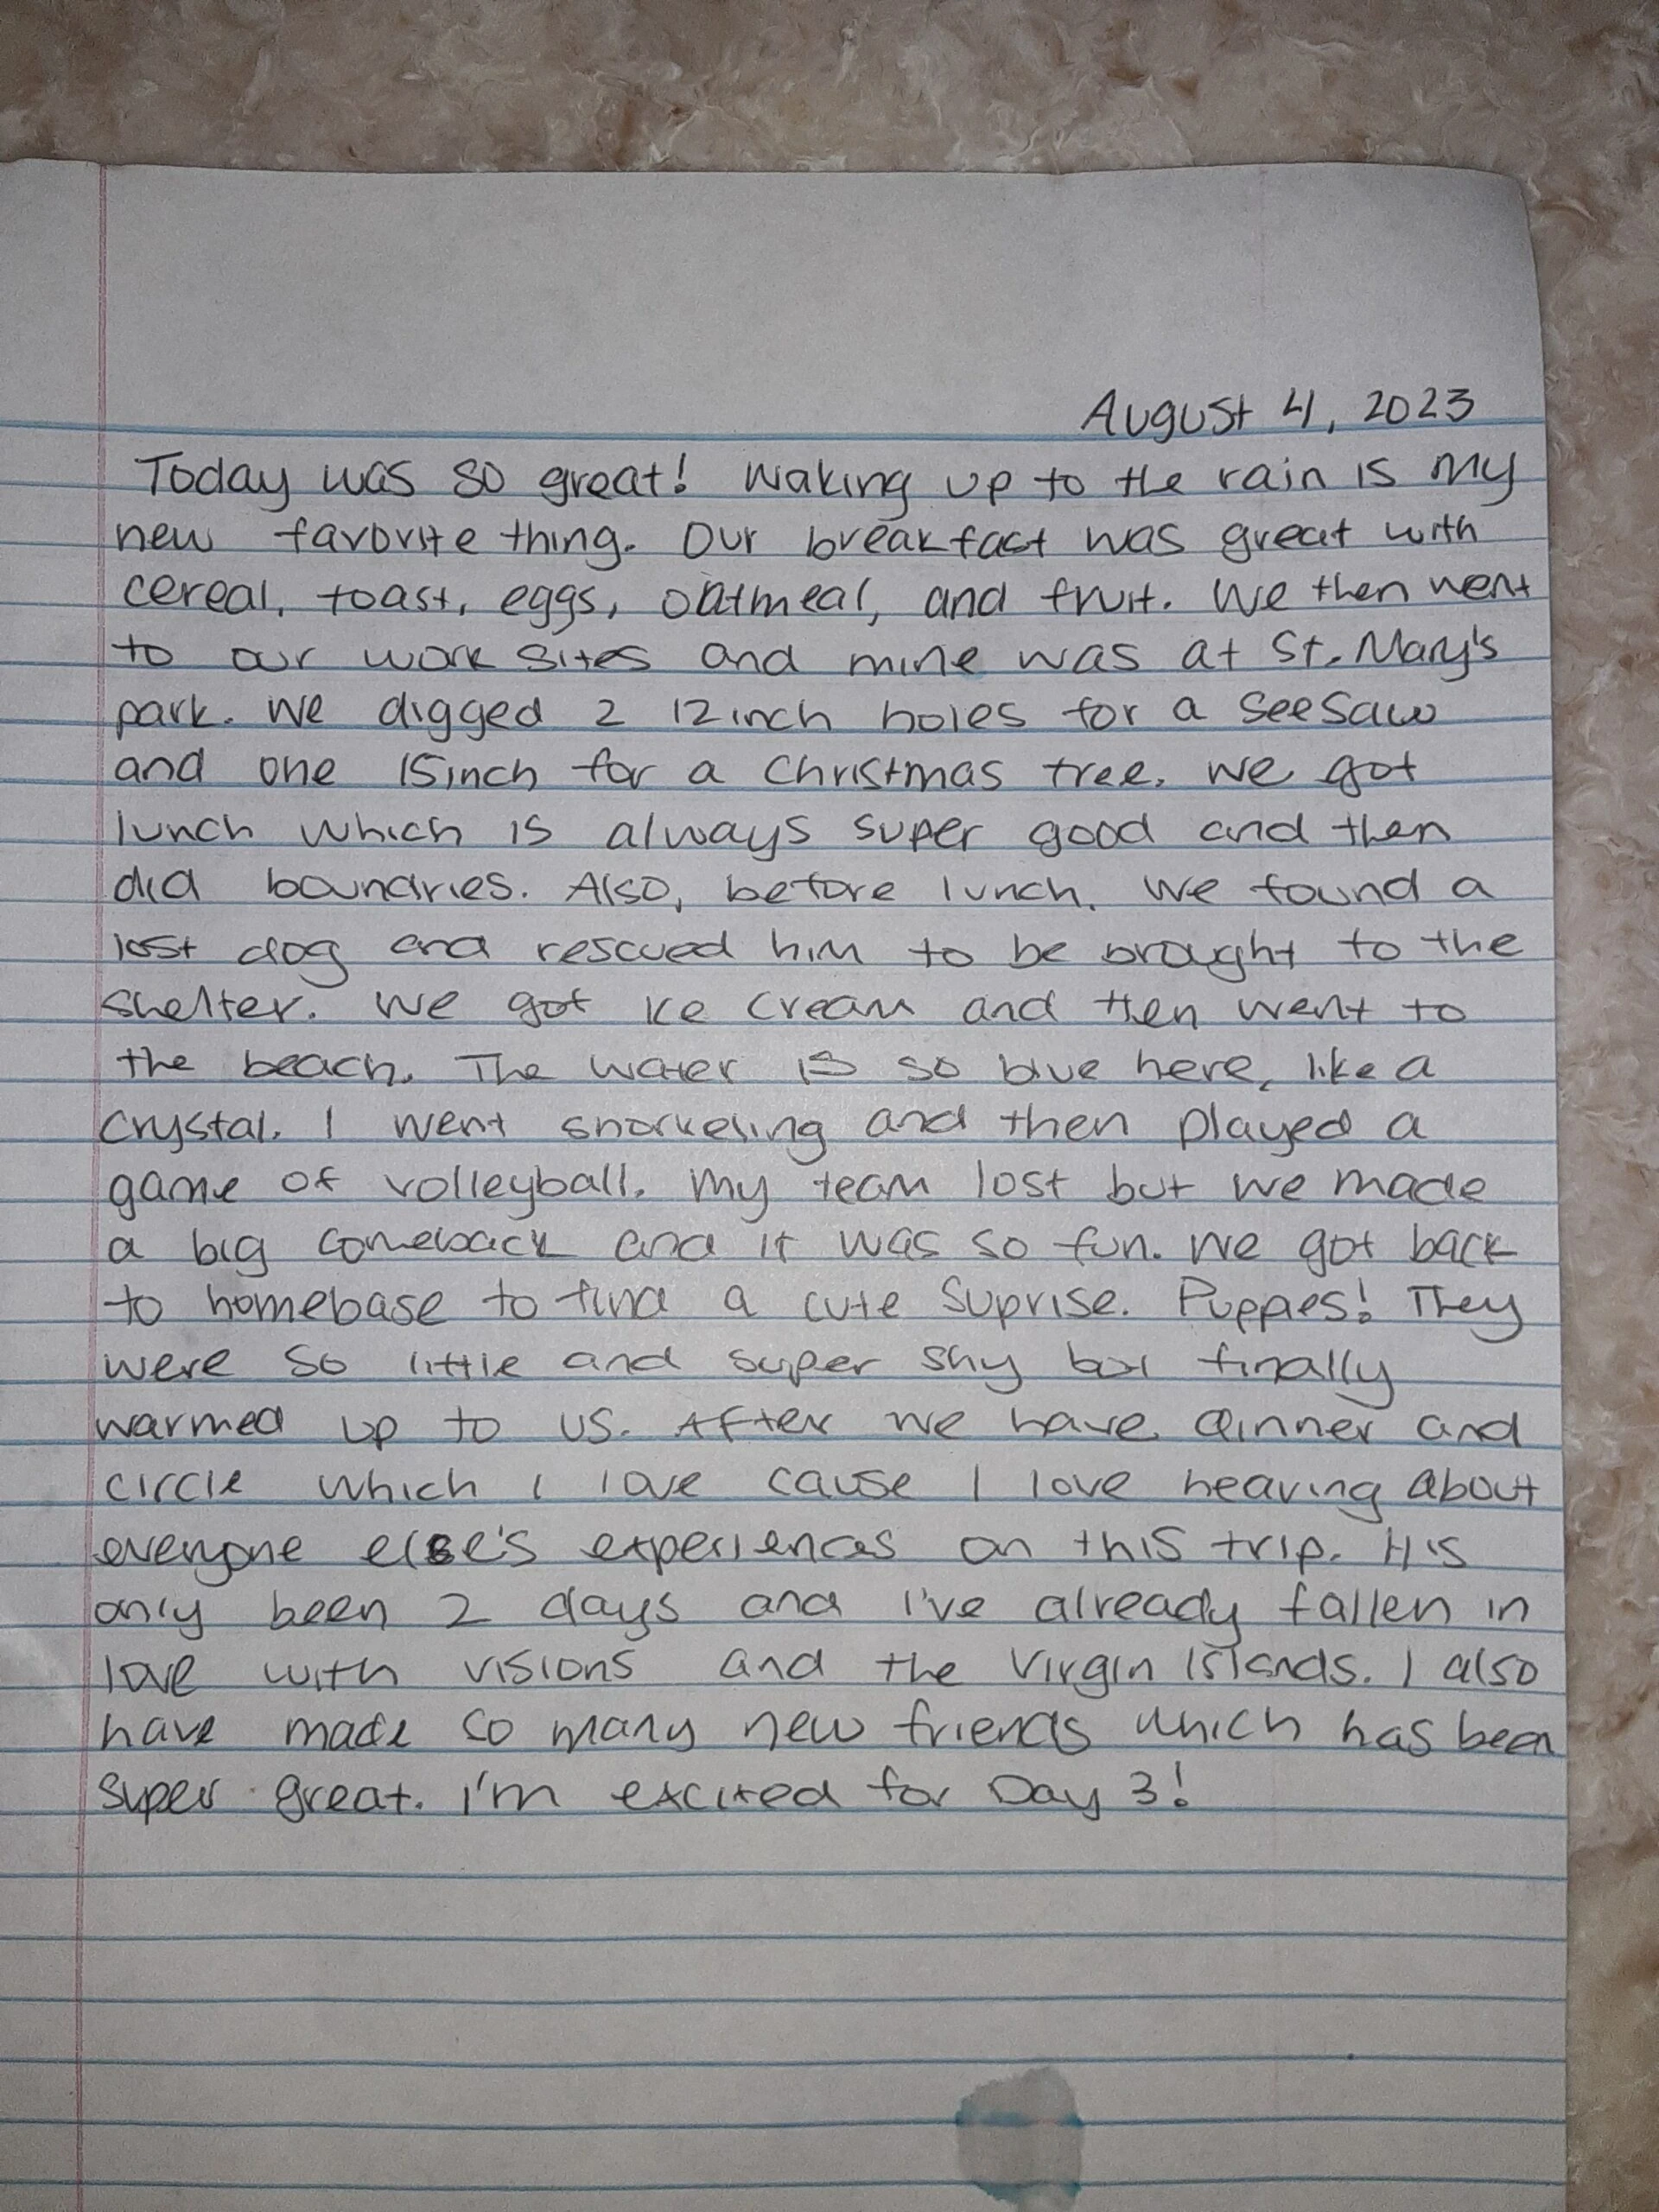 August 4, 2023
Today was so great! Waking up to the rain is my
new favorite thing. Our breakfast was great with
cereal, toast, eggs, oatmeal, and fruit. We then went
to our work sites and mine was at St. Mary's
park. We digged 2 12inch holes for a seesaw
and one 15inch for a Christmas tree. We got
lunch which is always super good and then
did boundries. Also, before lunch, we found a
lost dog and rescued him to be brought to the
shelter. We got ice cream and then went to
the beach. The water is so blue here, like a
crystal. I went snorkeling and then played a
game of volleyball. My team lost but we made
a big comeback and it was so fun. We got back
to homebase to find a cute suprise. Puppies! They
were so little and super shy but finally
warmed up to us. After we have dinner and
circle which I love cause I love hearing about
everyone else's experiences on this trip. It's
only been 2 days and I've already fallen in
love with visions and the Virgin Islands. I also
have made so many new friends which has been
super great. I'm excited for Day 3!